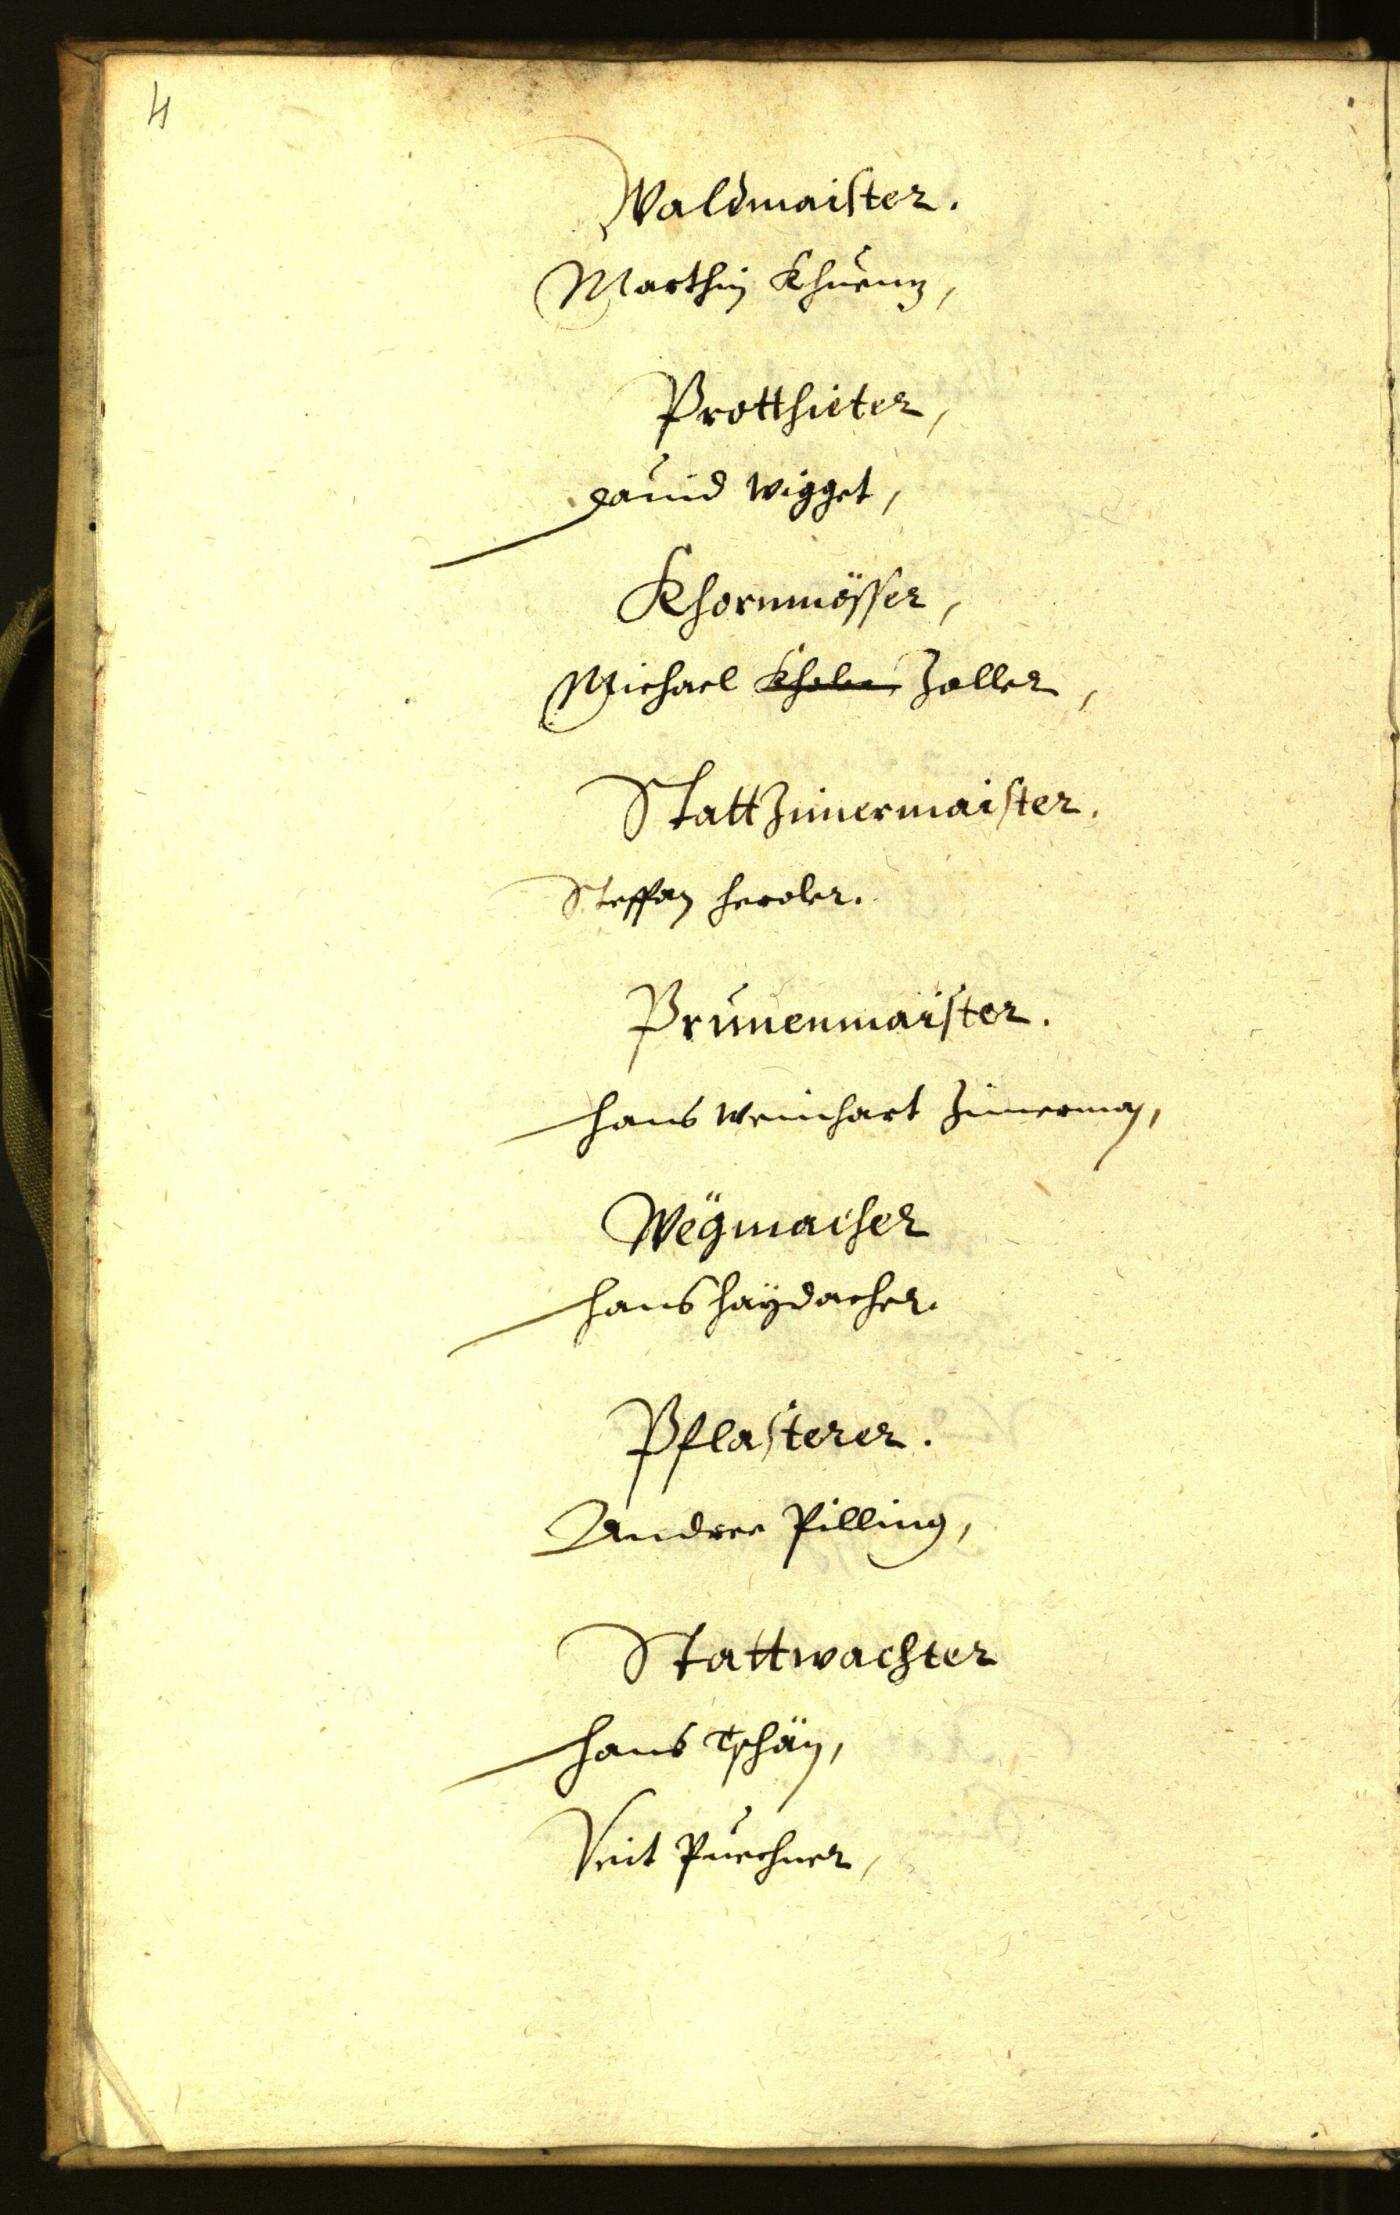 4
Waldmaister.
Marthin Khuenz,
Protthieter,
Dauid Wigget,
Khornmösser,
Michael Zoller,
Stattzimermaister.
Steffan Heroler.
Prunenmaister.
Hans Weinhart Zimerman,
Wegmacher
Hans Haydacher.
Pflasterer.
Andree Pilling,
Stattwachter
Hans Tschän,
Veit Puechner,